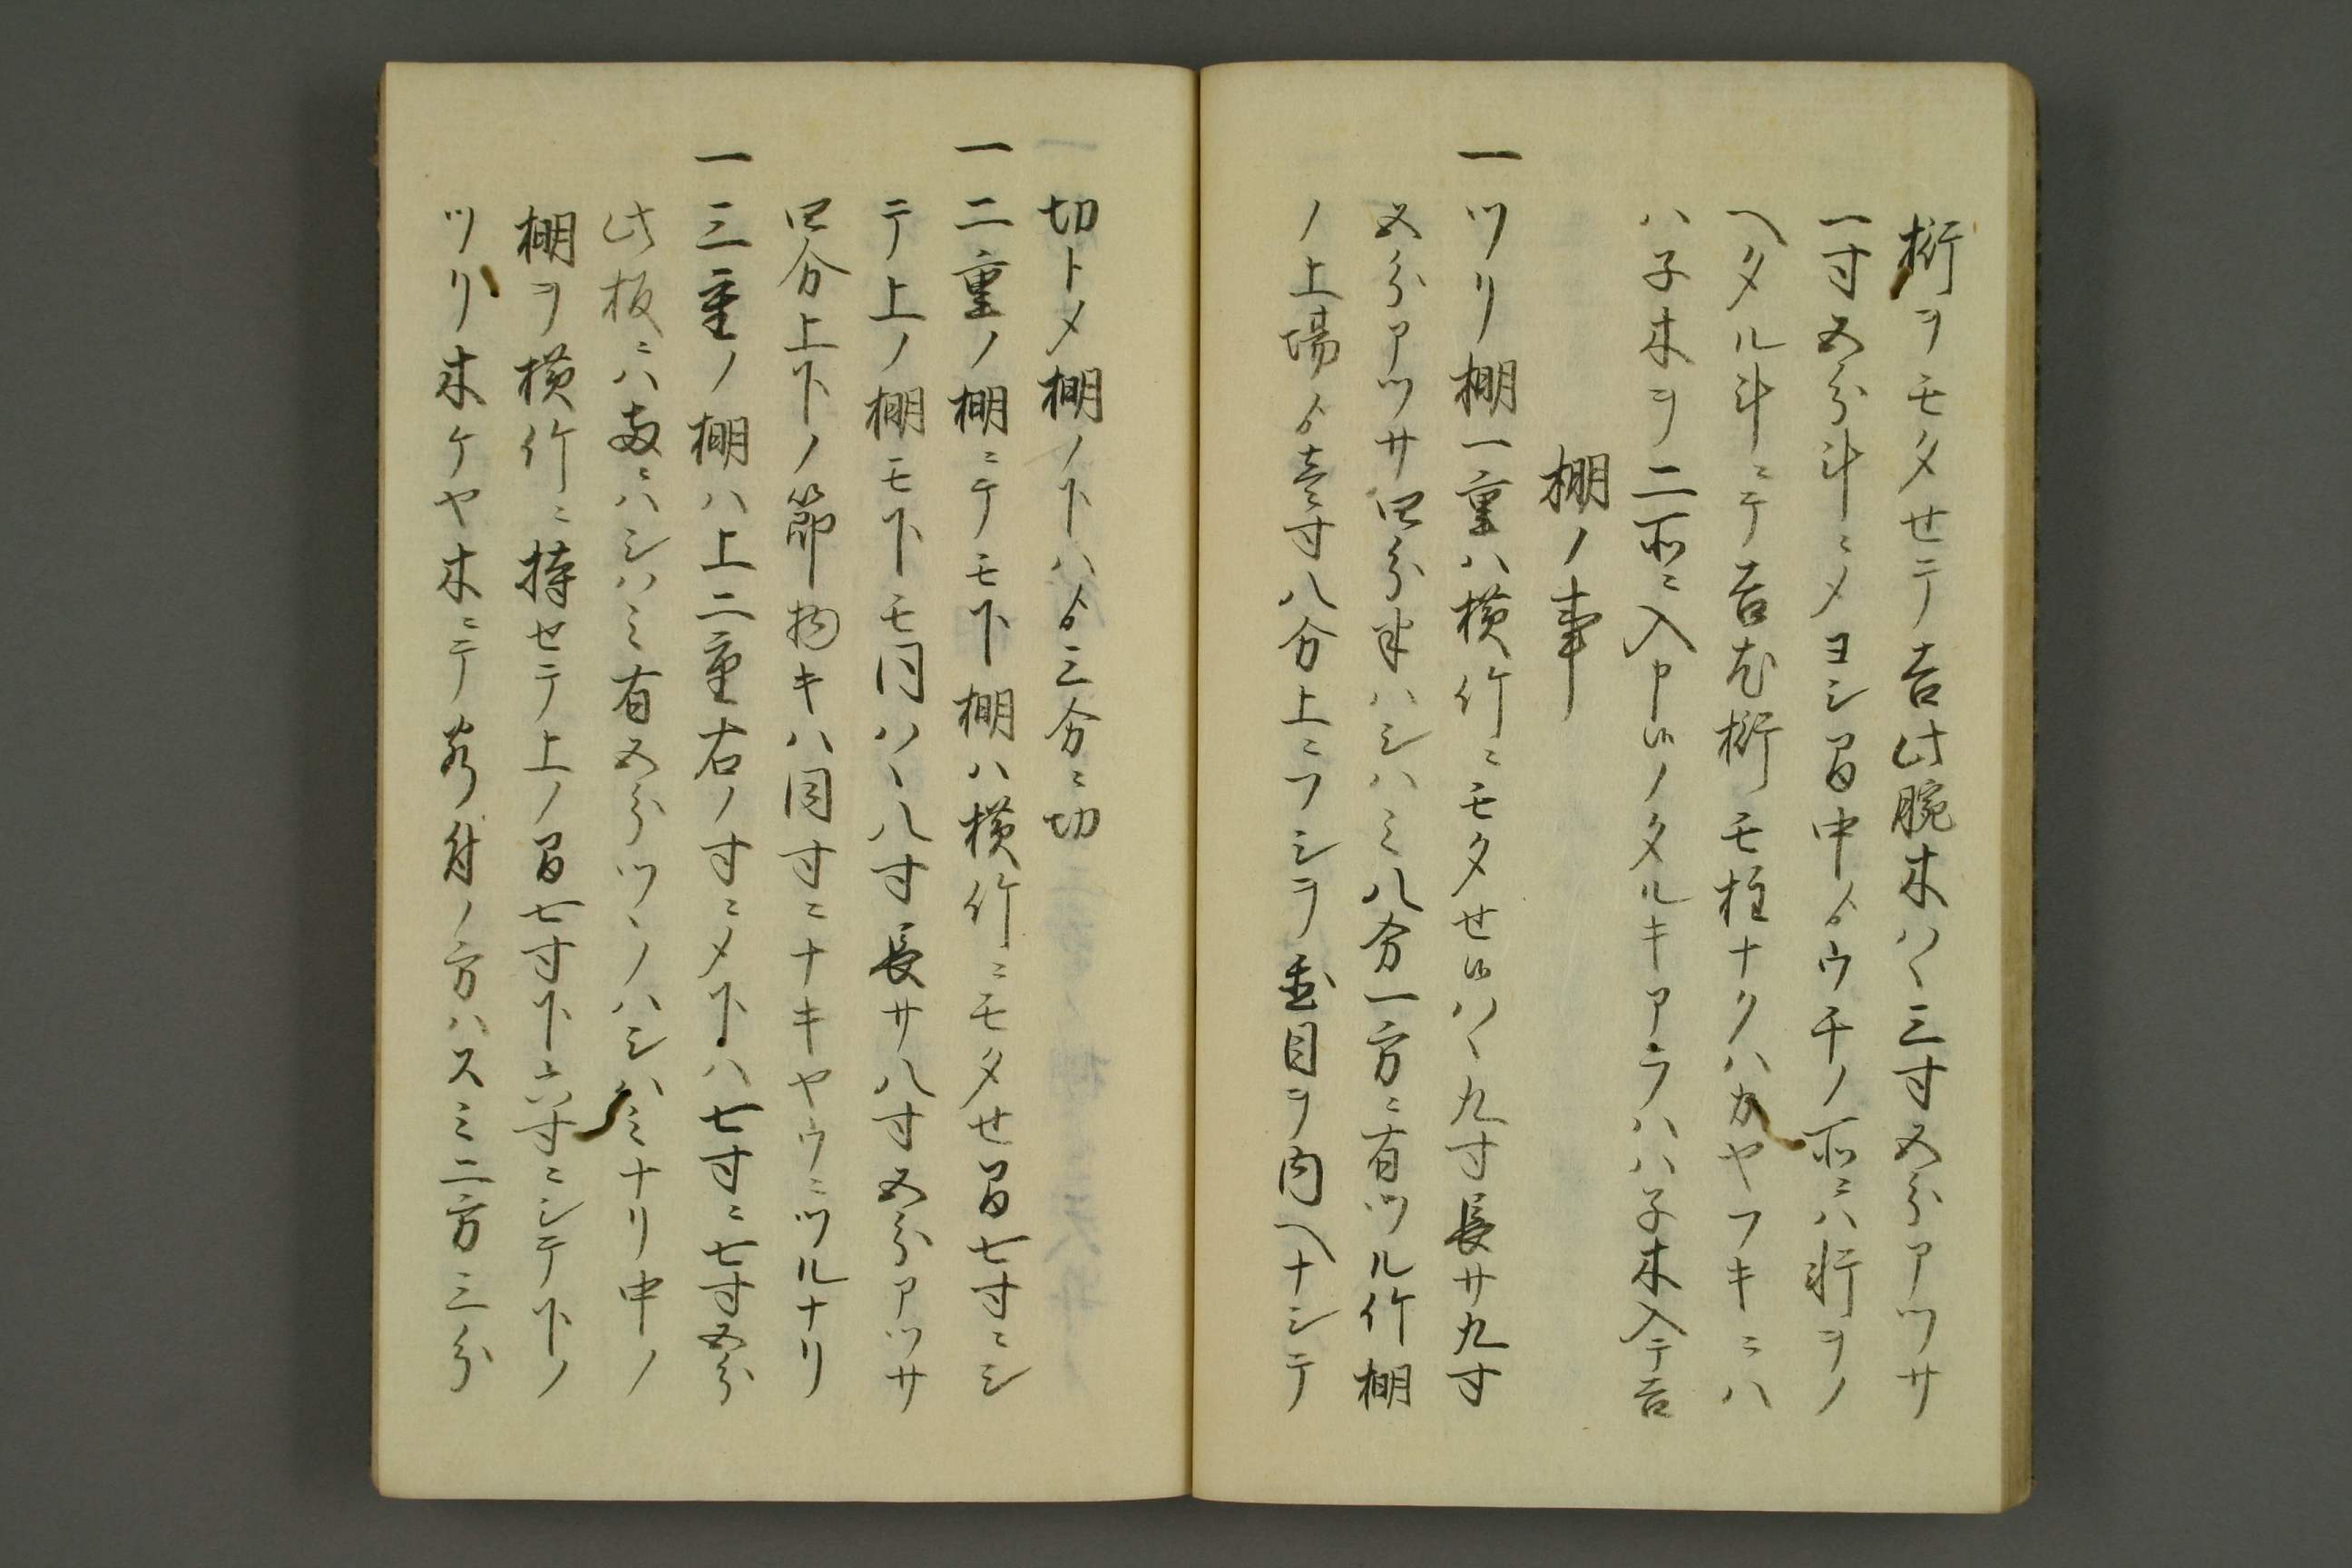 桁ヲモタせテ吉此腕木ハヽ三寸五分アツサ
一寸五分斗ニメヨシ冒中ゟウチノ所ニハ桁ヲノ
ヘタル斗ニテ吉尤桁モ柱ナクハカヤフキニハ
ハ子木ヲ二所ニ入申候ノタルキアラハハ子木入テ吉
棚ノ事
一ツリ棚一重ハ横竹ニモタせ候ハヽ九寸長サ九寸
五分アツサ四分半ハシハミ八分一方ニ有ツル竹棚
ノ上場ゟ壱寸八分上ニフシヲ置目ヲ内ヘナシテ
切トメ棚ノ下ハゟ三分ニ切
一二重ノ棚ニテモ下棚ハ横竹ニモタせ間七寸ニシ
テ上ノ棚モ下モ同ハヽ八寸長サ八寸五分アツサ
四分上下ノ節物キハ同寸ニナキヤウニツルナリ
一三重ノ棚ハ上二重右ノ寸ニメ下ハ七寸ニ七寸五分
此板ニハ両ニハシハミ有五分ツヽノハシハミナリ中ノ
棚ヲ横竹ニ持せテ上ノ間七寸下六寸ニシテ下ノ
ツリ木ケヤ木ニテ客付ノ方ハスミ二方三分